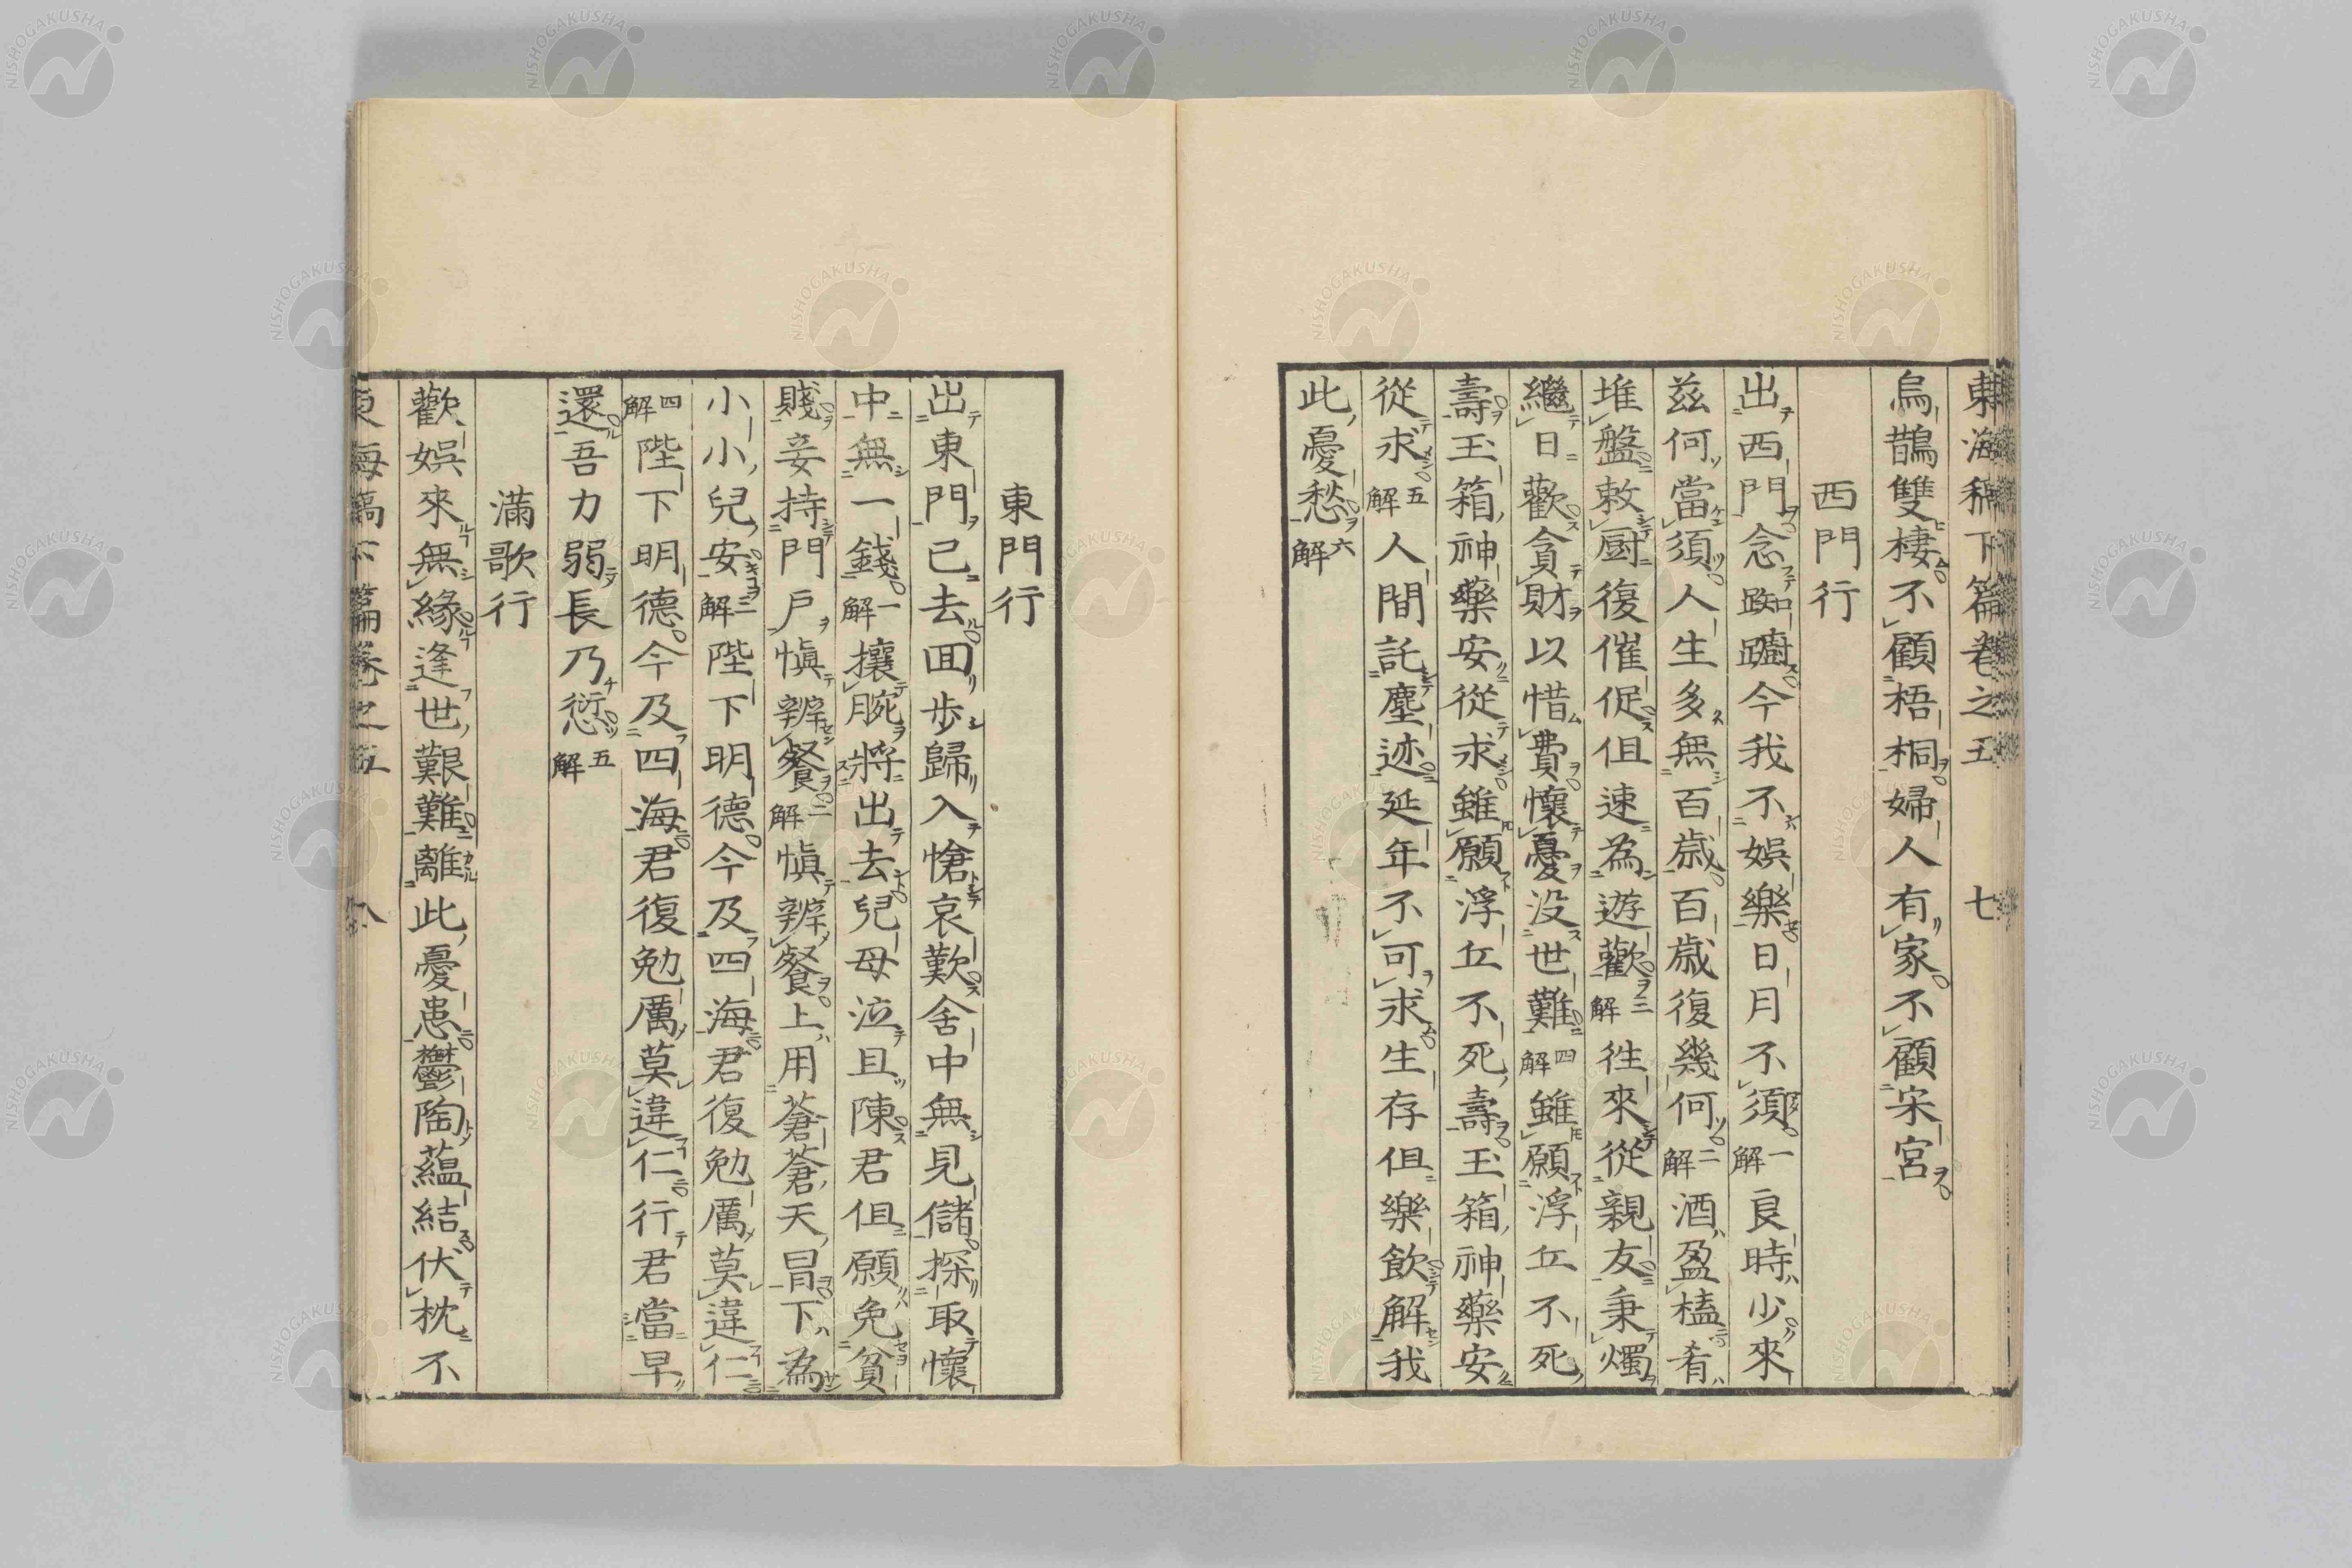 東海稿下篇卷之五 七
烏鵲雙棲不顧梧桐婦人有家不顧宋宮
西門行
出西門念踟躕今我不娯樂日月不須一解良時少來
茲何當須人生多無百歳百歳復幾何二解酒盈榼肴
堆盤敕厨復催促但速為遊歡三解徃來從親友秉燭
繼日歡貪財以惜費懷憂没世難四解雖願浮丘不死
壽玉箱神藥安從求雖願浮丘不死壽玉箱神藥安
從求五解人間託塵迹延年不可求生存但樂飲解我
此憂愁六解
東門行
出東門已去囬歩歸入愴哀歎舍中無見儲探取懷
中無一錢一解攘腕將出去兒母泣且陳君但願免貧
賤妾持門戸愼辦餐二解愼辦餐上用蒼蒼天冐下為
小小兒安三解陛下明德今及四海君復勉厲莫違仁
四解陛下明德今及四海君復勉厲莫違仁行君當早
還吾力弱長乃愆五解
滿歌行
歡娯來無緣逢世艱難離此憂患鬱陶蘊結伏枕不
東海稿下篇卷之五 八
NISHOGAKUSHA